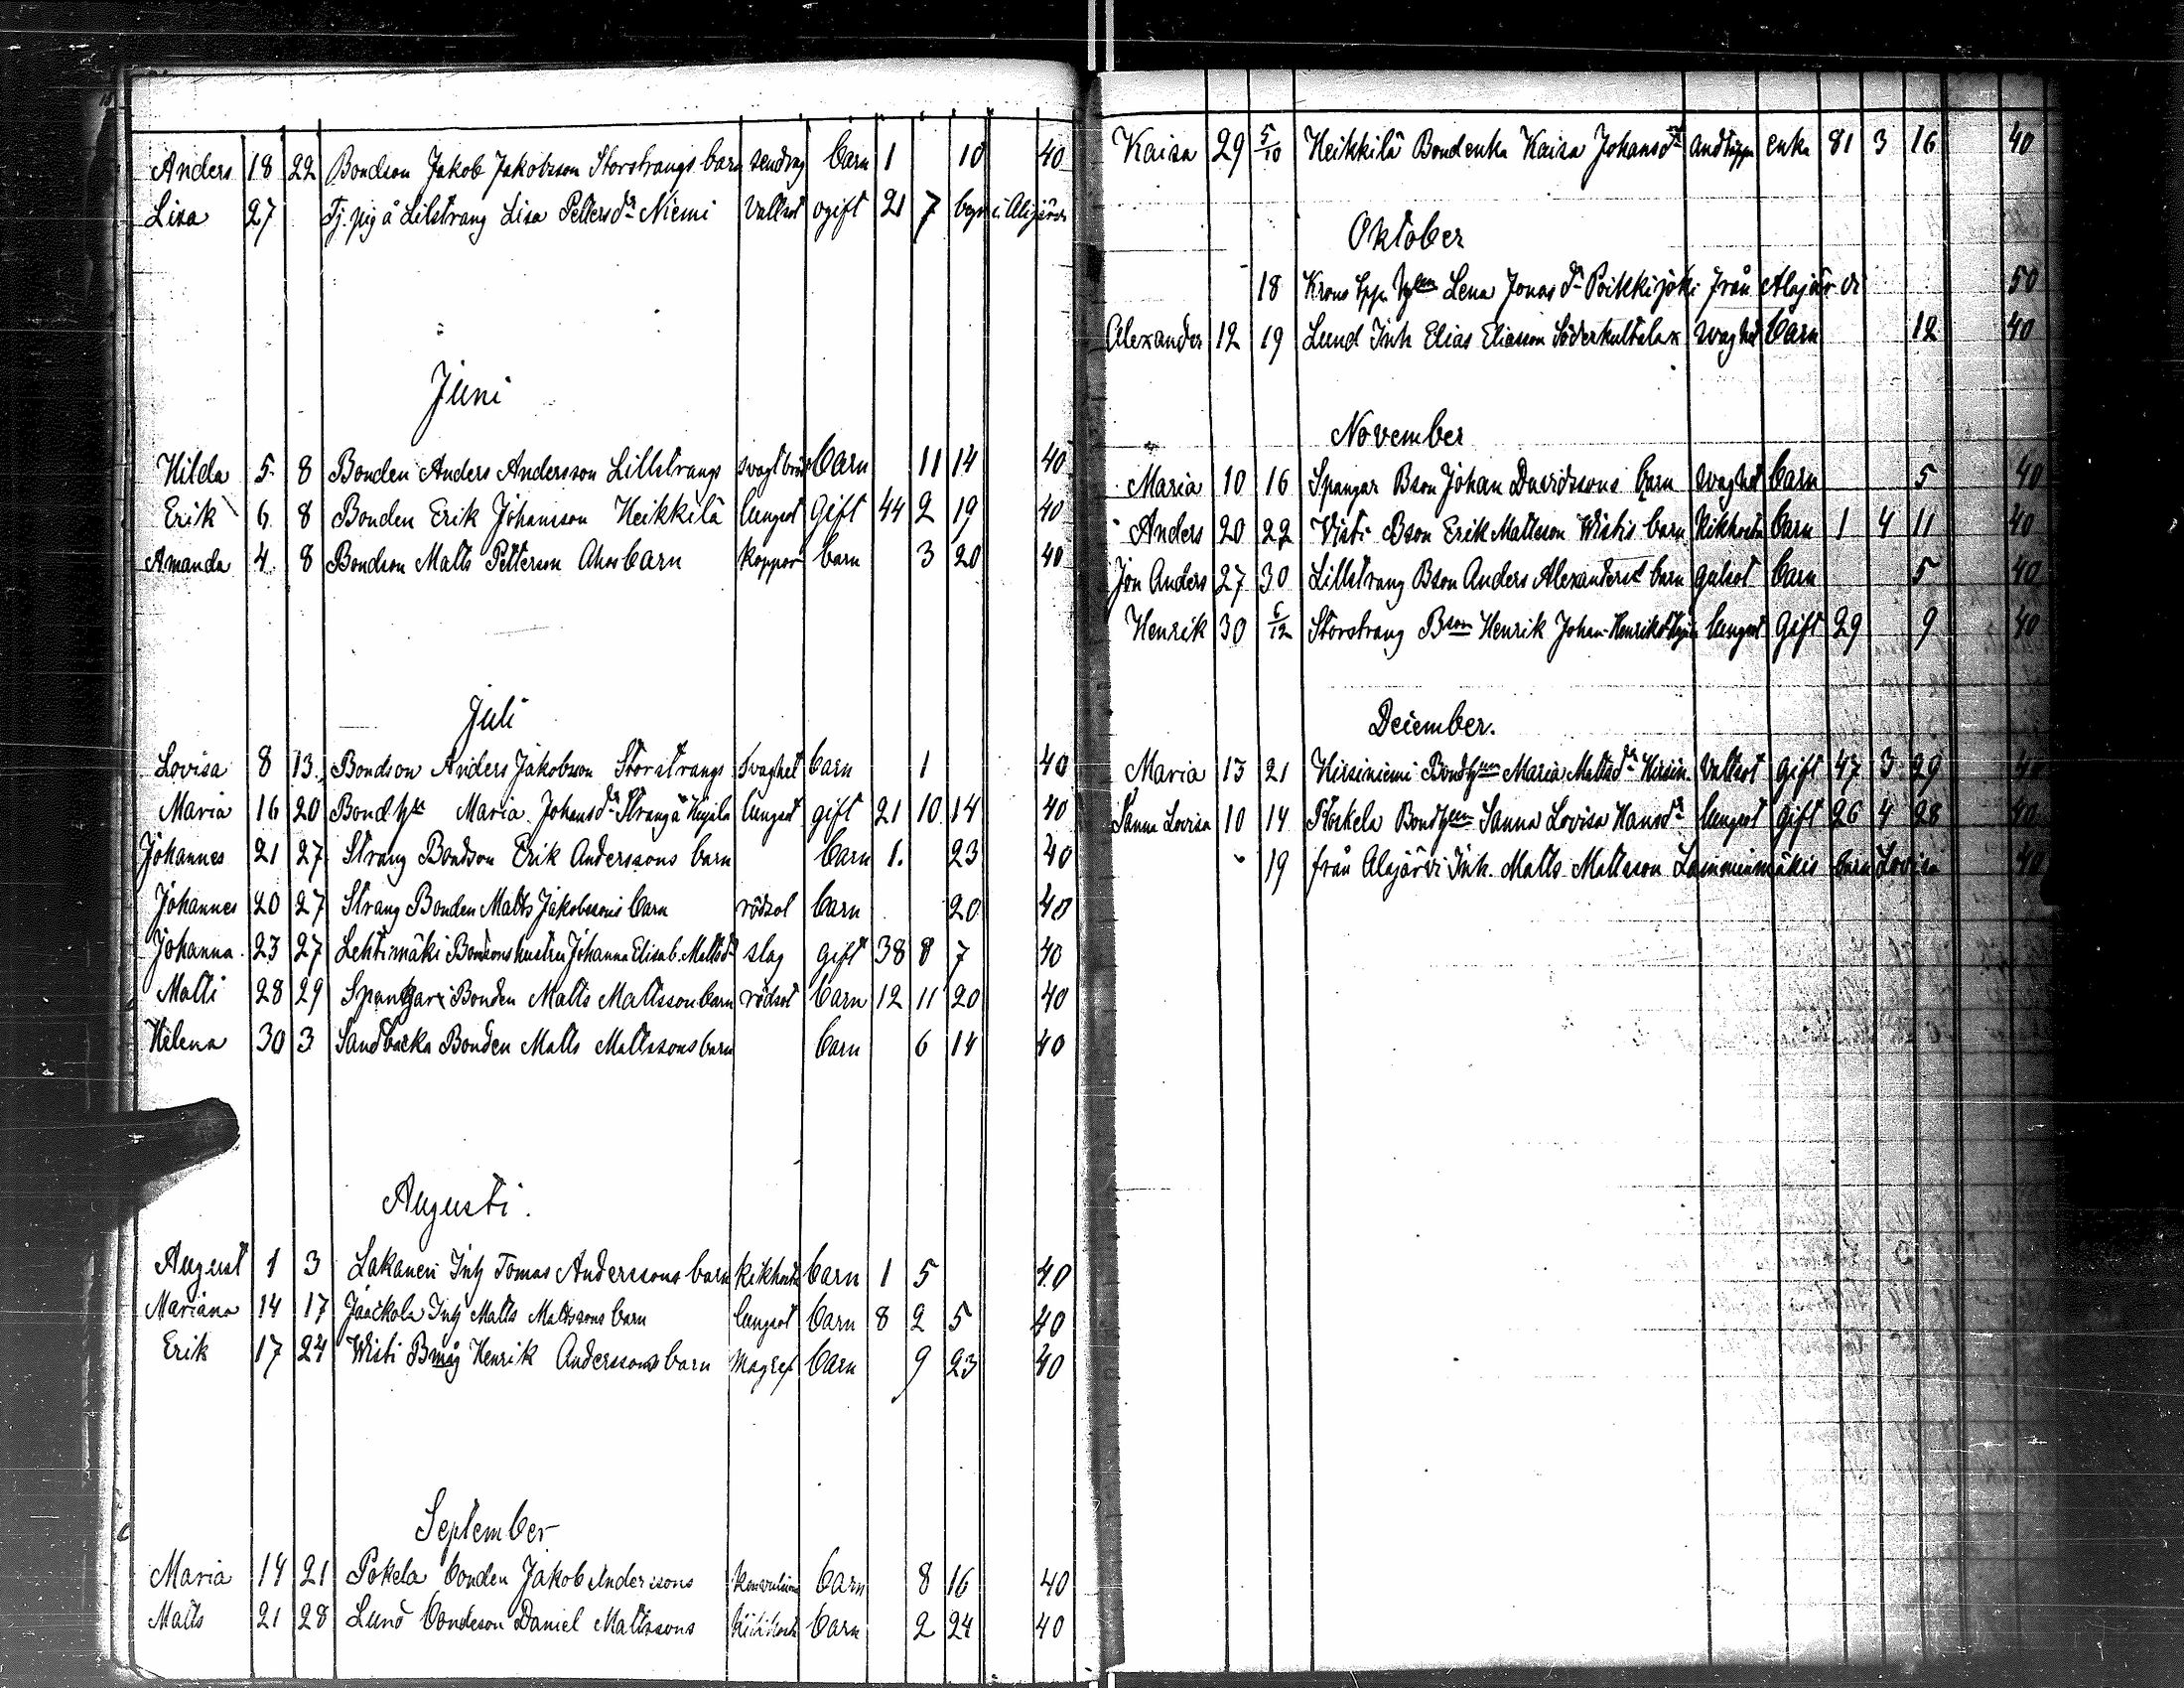 Anders 18 22 Bondson Jakob Jakobsson Storstrangs barn sendrag barn 1 10 40
Lisa 27 Tj. pig å Lilstrang Lisa Petters dr Niemi Vattsot ogift 21 7 i Alajärvi
Juni
Hilda 5 8 Bonden Anders Andersson Lillstrangs barn 11 14 40
Erik 6 8 Bonden Erik Johansson Heikkilä lungsot Gift 44 2 19 40
Amanda 4 8 Bondson Matts Petterson Ahos barn koppor barn 3 20 40
Juli
Lovisa 8 13 Bondson Anders Jakobsson Storstrangs Svaghet barn 1 40
Maria 16 20 Bond Maria Johans dr Strang å lungsot gift 21 10 14 40
Johannes 21 27 Strang Bondson Erik Anderssons barn barn 1. 23 40
Johannes 20 27 Strang Bonden Matts Jakobssons barn rödsot barn 20 40
Johanna 23 27 Lehtimäki Bondsons hustru Johanna Elisab. Matts dr slag gift 38 8 7 40
Matti 28 29 Spangar Bonden Matts Mattsson barn rödsot barn 12 11 20 40
Helena 30 3 Sandbacka Bonden Matts Mattssons barn barn 6 14 40
Augusti.
August 1 3 Lakaneni Inh Tomas Anderssons barn kikhosta barn 1 5 40
Mariana 14 17 Jäiickola Inh Matts Mattssons barn lungsot barn 8 2 5 40
Erik 17 24 Wisti Bmåg Henrik Anderssons barn Magref barn 9 23 40
September
Maria 14 21 Pokela bonden Jakob Anderssons barn 8 16 40
Matts 21 28 Lund bondeson Daniel Mattssons Kikhosta barn 2 24 40
Kaisa 29 5/10 Heikkilä Bondenka Kaisa Johans dr Andtäppa enka 81 3 16 40
Oktober
18 Krono Lena Jonas dr Poikkijoki från Alajärvi 50
Alexander 12 19 Lund Inh Elias Eliasson Söderkultalax svaghet barn 12 40
November
Maria 10 16 Spangar Bson Johan Davidssons barn svaghet barn 5 40
Anders 20 22 Visti Bson Erik Mattsson Wistis barn Kikhosta barn 1 4 11 40
Jon Anders 27 30 Lillstrang Bson Anders Alexanders barn gulsot barn 5 40
Henrik 30 6/12 Storstrang Bson Henrik Johan Henriks lungsot Gift 29 9 40
December.
Maria 13 21 Hirsiniemi Bondhun Maria Matts dr Hirsin. Vattsot gift 47 3 29 40
Sanna Lovisa 10 14 Bondhun Sanna Lovisa Hans dr lungsot gift 26 4 28 40
19 från Alajärvi Inh. Matts Mattsson Lamminmäkis barn Lovisa 40